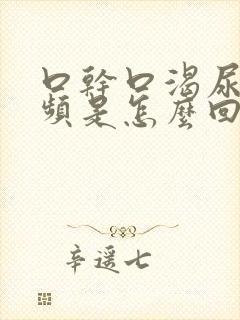 口幹口渴尿
頻是怎麼回
辛遥七